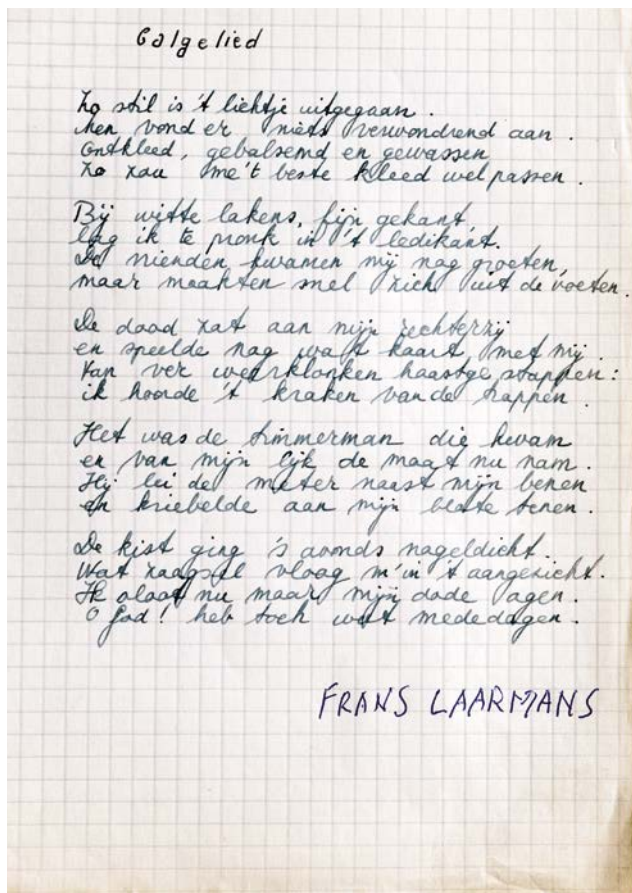 Galgelied
Zo stil is 't lichtje uitgegaan.
Men vond er niets verwondrend aan.
Ontkleed, gebalsemd en gewassen
Zo zou me't beste kleed wel passen.
Bij witte lakens, fijn gekant,
lag ik te pronk in 't ledikant.
De vrienden kwamen mij nog groeten,
maar maakten snel zich uit de voeten.
De dood zat aan mijn rechterzij
en speelde nog wat kaart met mij.
Van ver weerklonken haastge stappen:
ik hoorde 't kraken van de trappen.
Het was de timmerman die kwam
en van mijn lijk de maat nu nam.
Hij lei de meter naast mijn benen
en kriebelde aan mijn blote tenen.
De kist ging 's avonds nageldicht.
Wat zaagsel vloog m'in 't aangezicht.
Ik sloot nu maar mijn dode ogen.
O God! heb toch wat mededogen.
FRANS LAARMANS